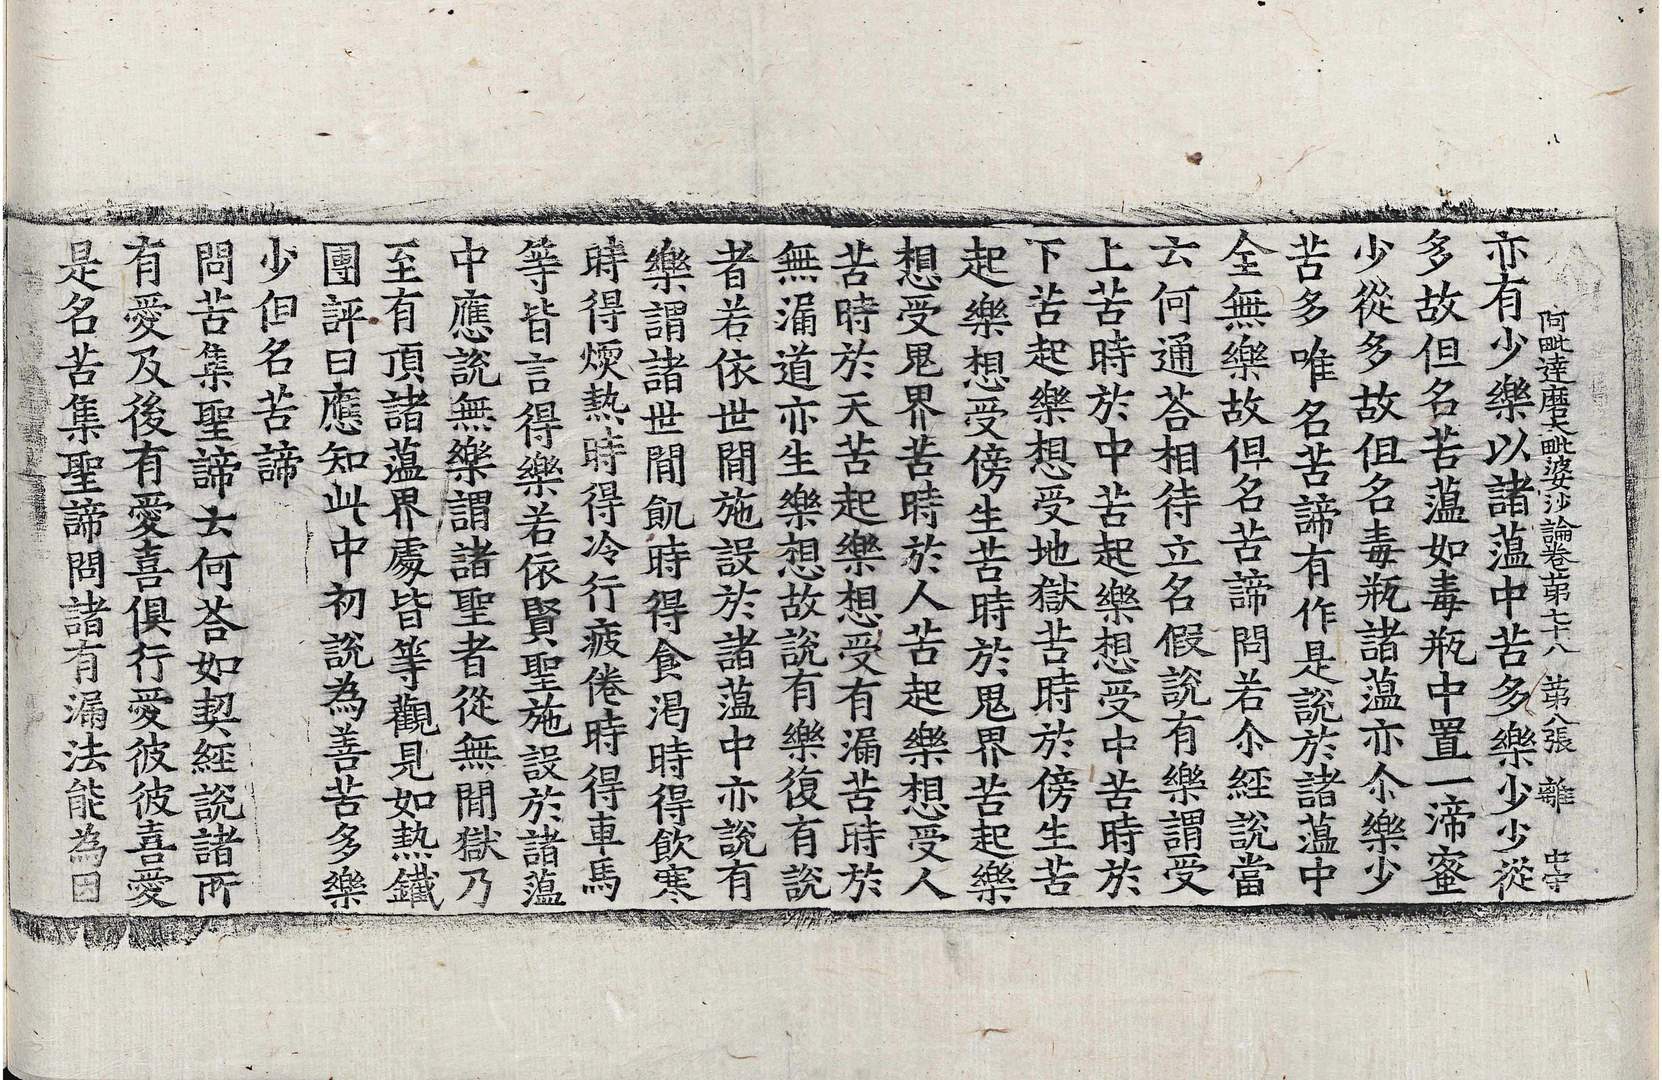 阿毗達磨大毗婆沙論卷苐七十八 苐八張 離 中寺
亦有少樂以諸薀中苦多樂少少從
多故但名苦薀如毒瓶中置一渧蜜
少從多故但名毒瓶諸薀亦尒樂少
苦多唯名苦諦有作是説於諸薀中
全無樂故但名苦諦問若尒經説當
云何通荅相待立名假説有樂謂受
上苦時於中苦起樂想受中苦時於
下苦起樂想受地獄苦時於傍生苦
起樂想受傍生苦時於鬼界苦起樂
想受鬼界苦時於人苦起樂想受人
苦時於天苦起樂想受有漏苦時於
無漏道亦生樂想故説有樂復有説
者若依世間施設於諸薀中亦説有
樂謂諸世間飢時得食渴時得飲寒
時得煗熱時得冷行疲倦時得車馬
等皆言得樂若依賢聖施設於諸薀
中應説無樂謂諸聖者從無間獄乃
至有頂諸薀界處皆等觀見如熱鐵
團評曰應知此中初説為善苦多樂
少但名苦諦
問苦集聖諦云何荅如契經説諸所
有愛及後有愛喜俱行愛彼彼喜愛
是名苦集聖諦問諸有漏法能為因